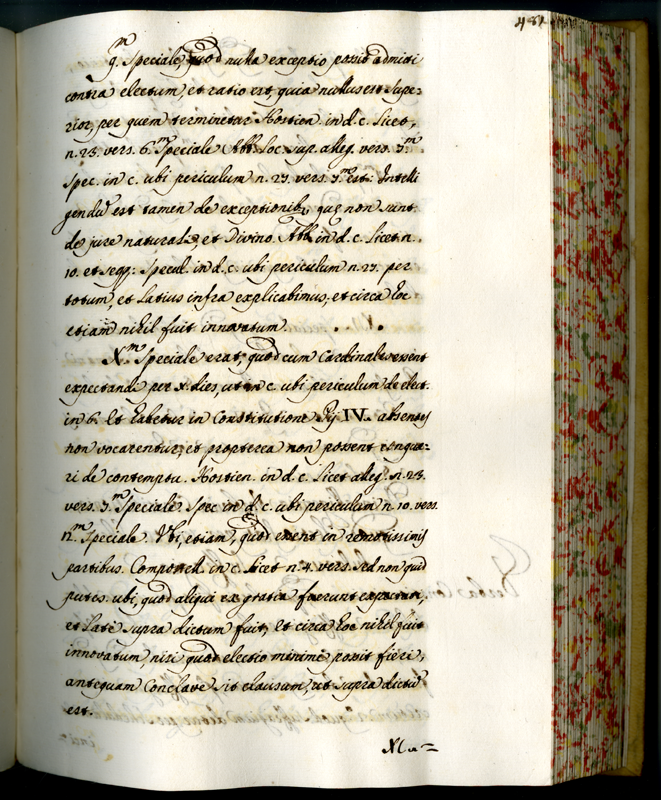 481
9.m Speciale, quod nulla exceptio possit admitti
contra electum, et ratio est, quia nullus est supe-
rior, per quem terminetur Hostien. in d. c. licet,
n. 23. vers. 6.m Speciale Abb. loc. sup. alleg. vers. 3.m
Spec. in c. ubi periculum n. 23. vers. 3.m est: Intelli
gendū est tamen de exceptionib., quę non sunt
de jure naturali, et Divino. Abb. in d. c. licet n.
10. et seqq: Specul. in d. c. ubi periculum n. 23. per
totum, et latius infra explicabimus, et circa hoc
etiam nihil fuit innovatum.
X.m Speciale erat, quod cum Cardinales essent
expectandi per x. dies, ut in c. ubi periculum de elect.
in 6. Et habetur in Constitutione Pij IV. absentes
non vocarentur, et propterea non possent conque-
ri de contemptu. Hostien. in d. c. licet alleg. n. 23.
vers. 3.m Speciale Spec. in d. c. ubi periculum n. 10. vers.
12.m Speciale. Ubi, etiam, quod essent in remotissimis
partibus. Compostell. in c. licet n. 4. vers. sed non quid
putes. ubi, quod aliqui ex gratia fuerunt expectati,
et late supra dictum fuit, et circa hoc nihil fuit
innovatum, nisi quod electio minimè possit fieri,
antequam Conclave sit clausum, ut supra dictū
est.